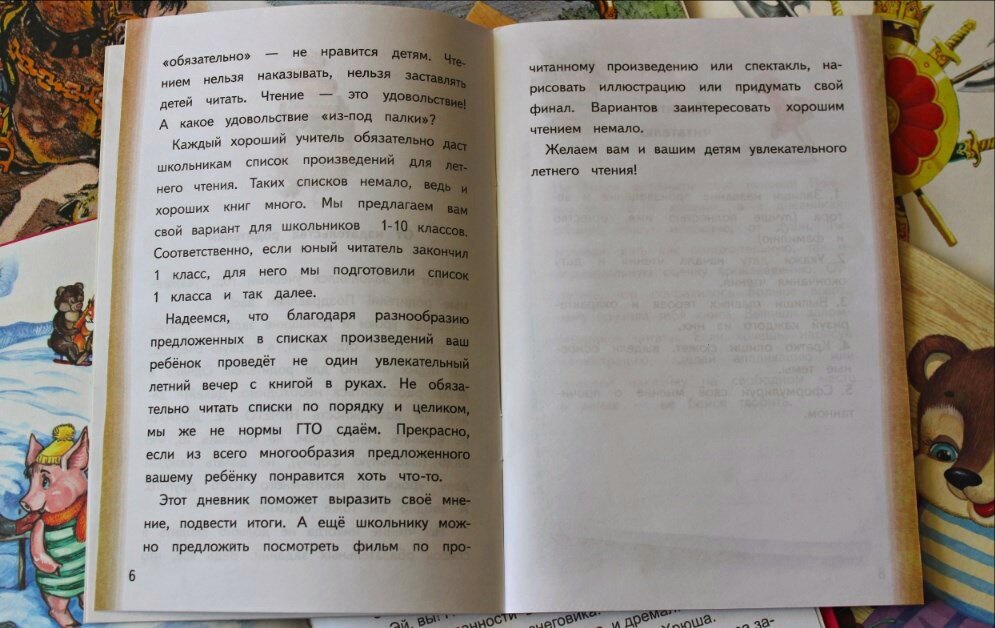 «обязательно» — не нравится детям. Чте-
нием нельзя наказывать, нельзя заставлять
детей читать. Чтение — это удовольствие!
А какое удовольствие «из-под палки»?
Каждый хороший учитель обязательно даст
школьникам список произведений для лет-
него чтения. Таких списков немало, ведь и
хороших книг много. Мы предлагаем вам
свой вариант для школьников 1-10 классов.
Соответственно, если юный читатель закончил
1 класс, для него мы подготовили список
1 класса и так далее.
Надеемся, что благодаря разнообразию
предложенных в списках произведений ваш
ребёнок проведёт не один увлекательный
летний вечер с книгой в руках. Не обяза-
тельно читать списки по порядку и целиком,
мы же не нормы ГТО сдаём. Прекрасно,
если из всего многообразия предложенного
вашему ребёнку понравится хоть что-то.
Этот дневник поможет выразить своё мне-
ние, подвести итоги. А ещё школьнику мож-
но предложить посмотреть фильм по про-
6
читанному произведению или спектакль, на-
рисовать иллюстрацию или придумать свой
финал. Вариантов заинтересовать хорошим
чтением немало.
Желаем вам и вашим детям увлекательного
летнего чтения!
Эй, вы!
и дремал
Хрюша.